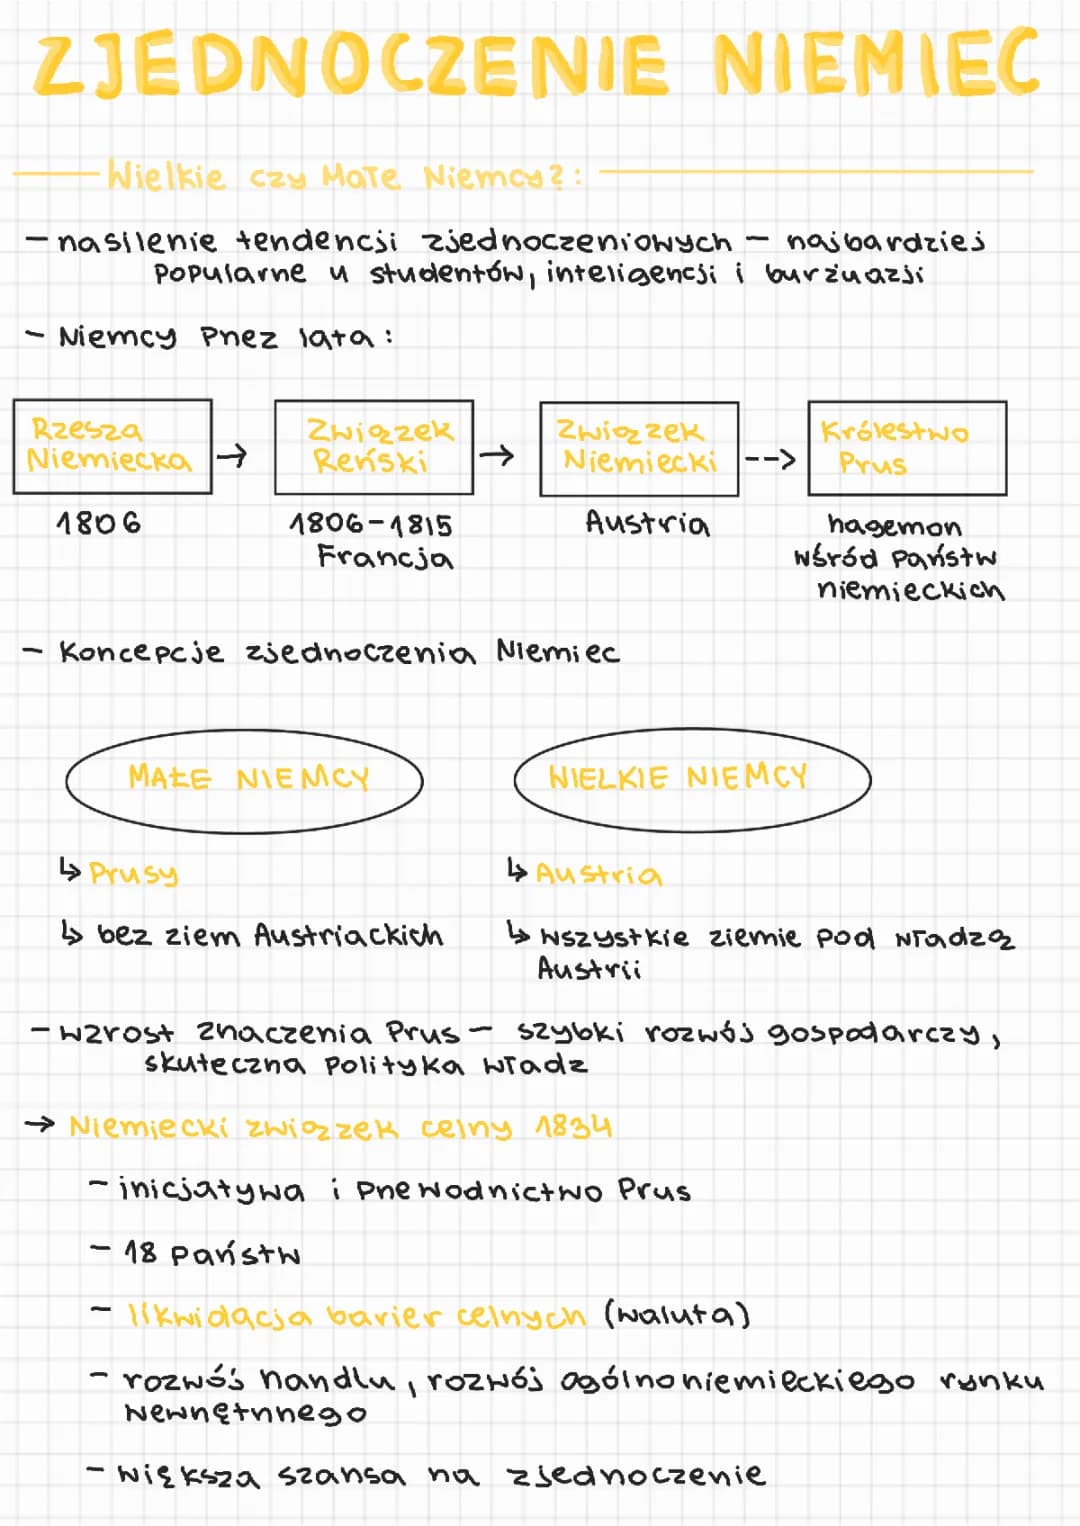 ZJEDNOCZENIE NIEMIEC
Wielkie czy Małe Niemcy?:
- nasilenie tendencji zjednoczeniowych - najbardziej
popularne u studentów, inteligencji i burżuazji
- Niemcy przez lata:
Rzesza
Niemiecka
→
Związek
Reński
→
Związek
Niemiecki
-->
Królestwo
Prus
1806
1806-1815
Francja
Austria
hagemon
wśród państw
niemieckich
- Koncepcje zjednoczenia Niemiec
MAŁE NIEMCY
WIELKIE NIEMCY
↳ Prusy
↳ bez ziem Austriackich
↳ Austria
↳ wszystkie ziemie pod władzą
Austrii
- wzrost znaczenia Prus - szybki rozwój gospodarczy,
skuteczna polityka władz
→ Niemiecki związek celny 1834
- inicjatywa i przewodnictwo Prus
- 18 państw
- likwidacja barier celnych (waluta)
- rozwój handlu, rozwój ogólnoniemieckiego rynku
wewnętrznego
- większa szansa na zjednoczenie